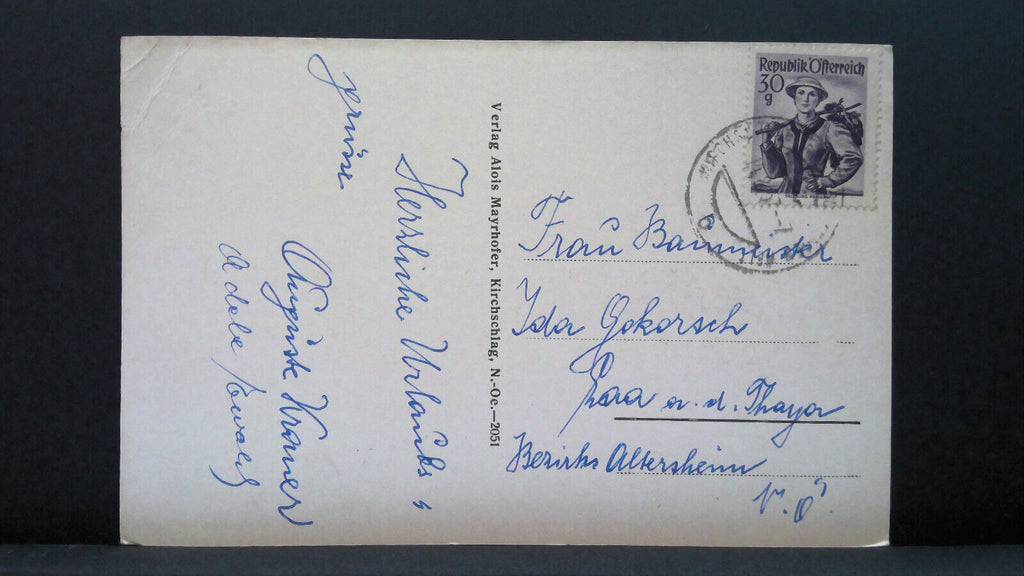 Herzliche Urlaubs =
grüsse
Auguste Kramer
Adele Ewald
Verlag Alois Mayrhofer, Kirchschlag, N.-Oe.—2051
Republik Österreich
30
g
KIRCHSCH
Frau Baumeister
Ida Gokorsch
Laa a. d. Thaya
Bezirks Altersheim
N. Ö.